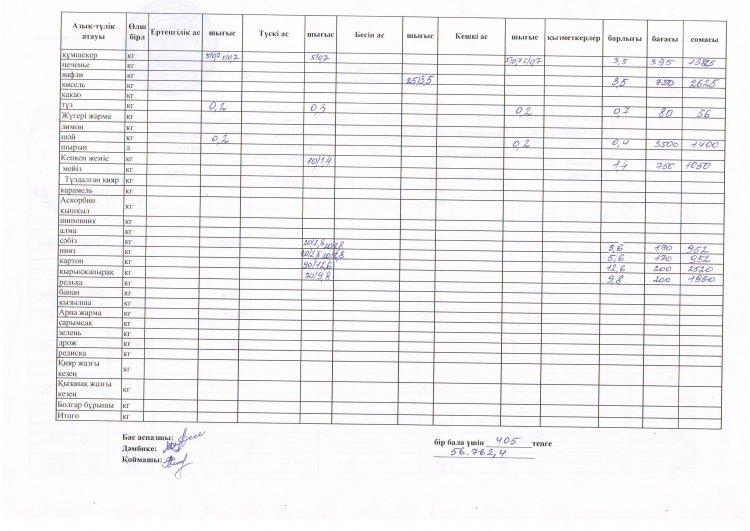 Азық-түлік атауы Өлш бірл Ертеңгілік ас шығыс Түскі ас шығыс Бесін ас шығыс Кешкі ас шығыс қызметкерлер барлығы бағасы сомасы
құмшекер кг 5/0,7 5/0,7 5/0,7 5/0,7 5/0,7 3,5 395
печенье кг
вафли кг 25/3,5 3,5 750 2625
кисель кг
какао кг
тұз кг 0,2 0,3 0,2 0,7 80 56
Жүгері жарма кг
лимон кг
шәй кг 0,2 0,2 0,4 3500 1400
шырын л
Кепкен жеміс кг 10/1,4 1,4 750 1050
мейіз кг
Тұздалған қияр кг
карамель кг
Аскорбин қышқыл кг
шиповник кг
алма кг
сәбіз кг 20/2,8 20/2,8 5,6 170 952
пияз кг 20/2,8 20/2,8 5,6 170 952
картоп кг 90/12,6 12,6 200 2520
қырыққабырақ кг 70/9,8 9,8 200 1960
редька кг
банан кг
қызылша кг
Арпа жарма кг
сарымсақ кг
зелень кг
дрож кг
редиска кг
Қияр жазғы кезең кг
Қызанақ жазғы кезең кг
Болгар бұрышы кг
Итого кг
Бас аспазшы:
Дәмбике:
Қоймашы:
бір бала үшін 405 теңге
56.762,4